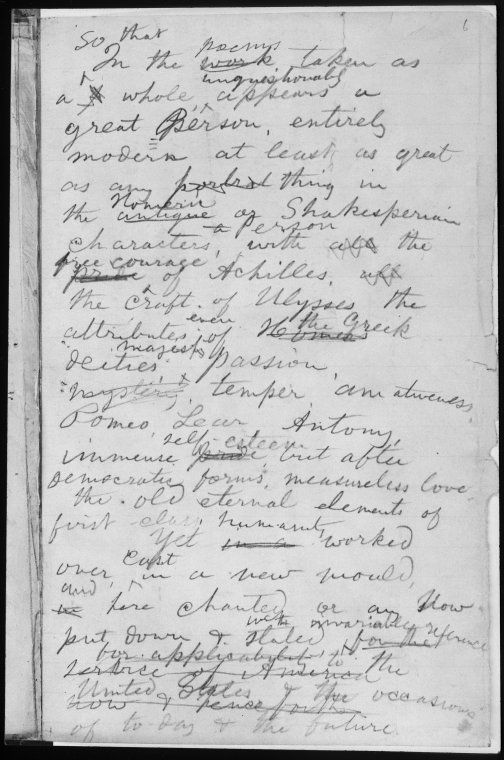 6
So that poems
In the work taken as
unquestionably
a whole, appears a
great Person, entirely
modern at least, as great
as any thing in
Homeric
the antique or Shakesperian
a person
characters, with all the
free courage
pride of Achilles, all
the craft of Ulysses, the
even the Greek
attributes of Homer
majesty
deities passion
mystery & temper, amativeness,
Romeo, Lear, Antony,
self-esteem
immense pride but after
democratic forms, measureless love,
the old eternal elements of
first-class humanity
Yet in a worked
over, cast in a new mould,
and
in here chanted or any How
with invariable reference
put down & stated for the
applicability to
service of America the
United States & the occasions
now & henceforth
of to-day & the future.